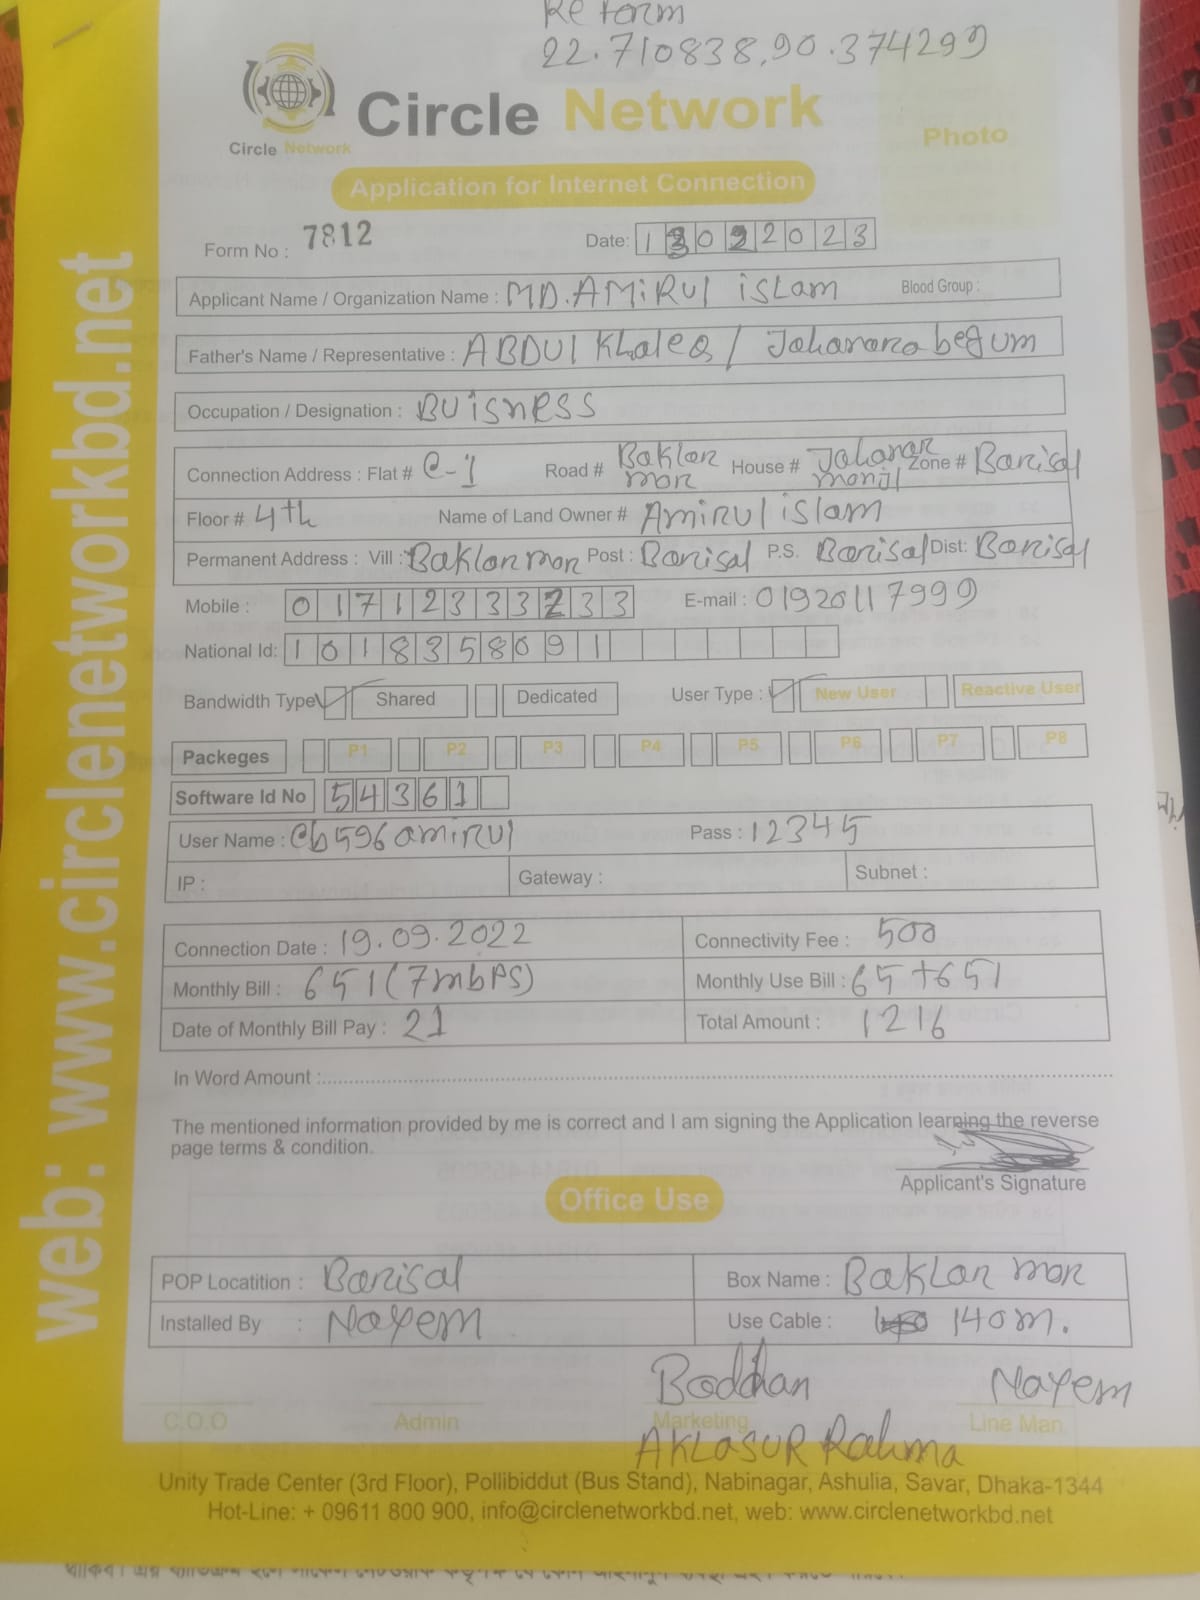 Re form
22.710838,90.374299
Circle Network
Circle Network
Photo
Application for Internet Connection
Form No : 7812
Date: 13022023
Applicant Name / Organization Name : MD.AMiRUl isLam Blood Group :
Father's Name / Representative : ABDUl Khaleq / Jahanara begum
Occupation / Designation : BUisness
Connection Address : Flat # C-1 Road # Baklar mor House # Jahanar monjil Zone # Barisal
Floor # 4th Name of Land Owner # Amirul islam
Permanent Address : Vill : Baklar mor Post : Barisal P.S. Barisal Dist: Barisal
Mobile : 01712333233 E-mail : 01920117999
National Id: 1018358091
Bandwidth Type Shared Dedicated User Type : New User Reactive User
Packeges P1 P2 P3 P4 P5 P6 P7 P8
Software Id No 54361
User Name : cb596amirul Pass : 12345
IP : Gateway : Subnet :
Connection Date : 19.09.2022 Connectivity Fee : 500
Monthly Bill : 651(7mbps) Monthly Use Bill : 65+651
Date of Monthly Bill Pay : 21 Total Amount : 1216
In Word Amount :
The mentioned information provided by me is correct and I am signing the Application learning the reverse
page terms & condition.
Applicant's Signature
Office Use
POP Locatition : Barisal Box Name : BakLar mor
Installed By : Nayem Use Cable : 140m.
Boddhan Nayem
C.O.O Admin Marketing Line Man
AKLASUR Rahma
Unity Trade Center (3rd Floor), Pollibiddut (Bus Stand), Nabinagar, Ashulia, Savar, Dhaka-1344
Hot-Line: + 09611 800 900, info@circlenetworkbd.net, web: www.circlenetworkbd.net
web: www.circlenetworkbd.net